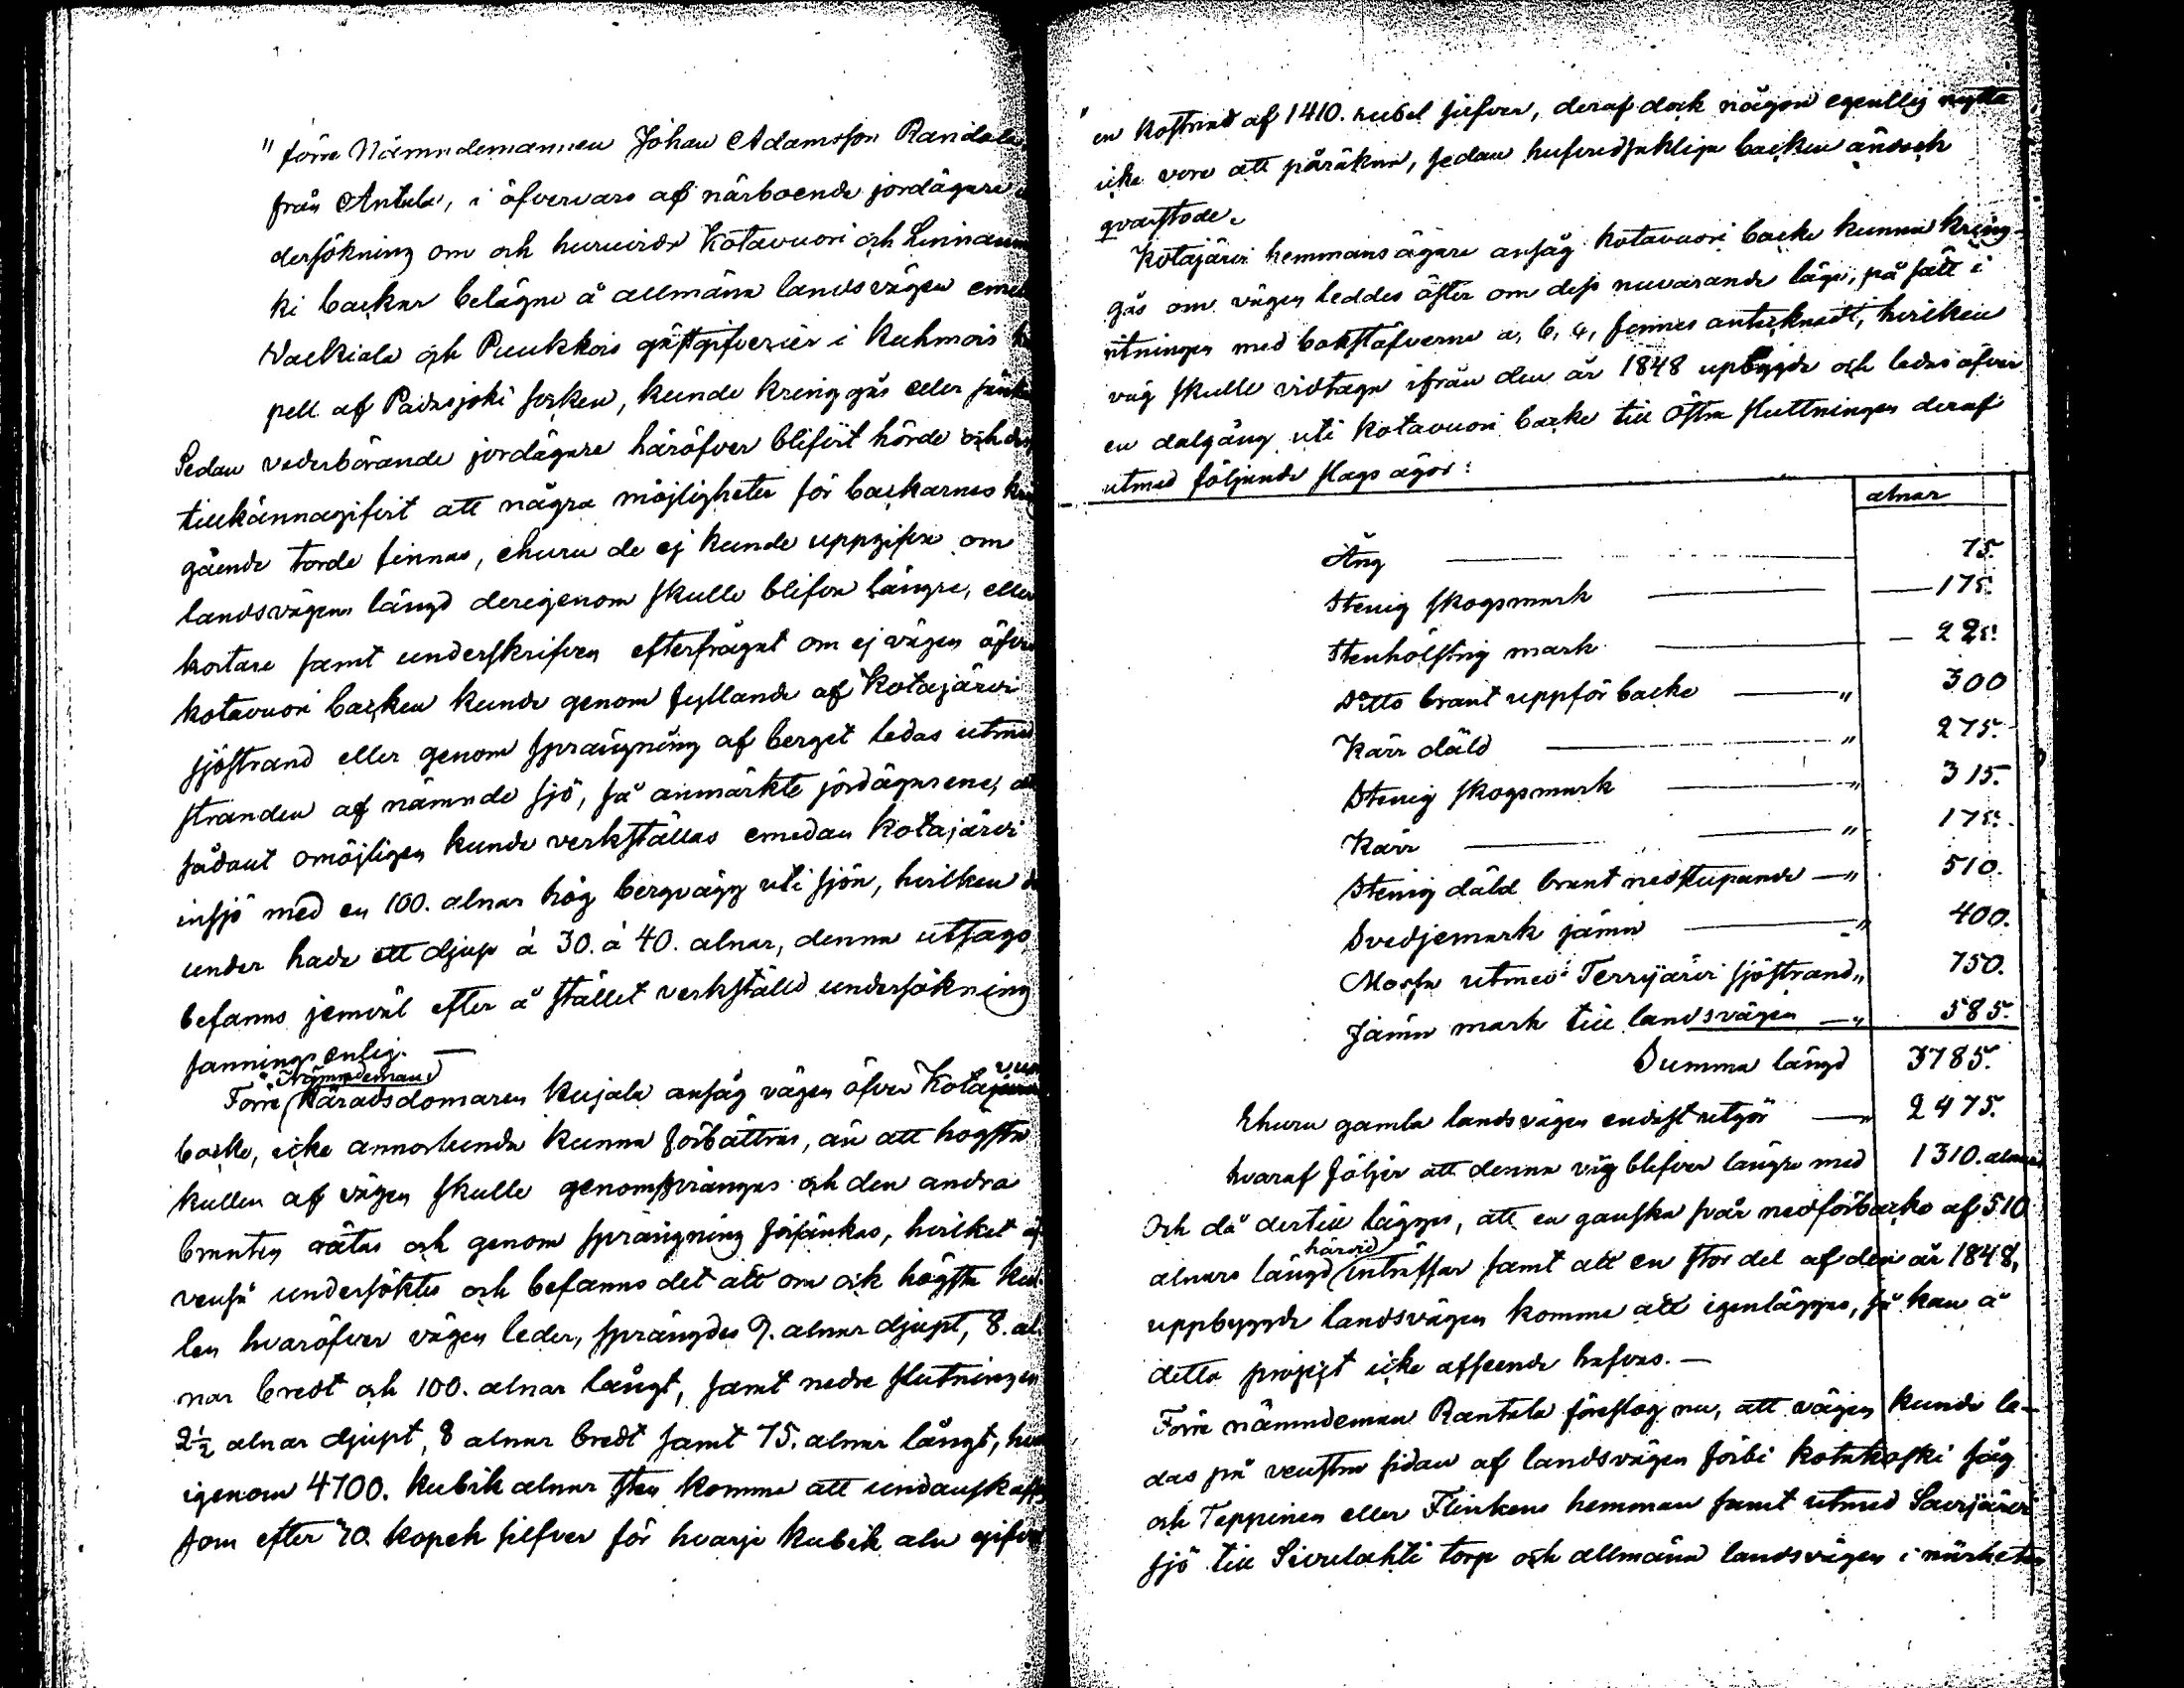 " förre Nämndemannen Johan Adamsson Randala
från Antula, i öfvervaro af närboende jordägare
dersökning om och huruvida Kotavuori och Linnanmä
ki backar belägne å allmänna landsvägen emel
Vaekiala och Puukkois gästgifverier i Kuhmois ka
pell af Padasjoki socken, kunde kringgås eller sänk
Sedan vederbörande jordägare häröfver blifvit hörde och de
tillkännagifvit att några möjligheter för backarnes kring
gående torde finnas, ehuru de ej kunde uppgifva om
landsvägens längd derigenom skulle blifva längre, eller
kortare samt underskrifven efterfrågat om ej vägen öfver
Kotavuori backen kunde genom fyllande af Kotajärvi
sjöstrand eller genom sprängning af berget ledas utmed
stranden af nämnde sjö, så anmärkte jordägarene, att
sådant omöjligen kunde verkställas emedan Kotajärvi
insjö med en 100. alnar hög bergvägg uti sjön, hvilken
under hade ett djup à 30. à 40. alnar, denna utsago
befanns jemväl efter å stället verkställd undersökning
sanningsenlig. —
Förre Nämndeman Häradsdomaren Kujala ansåg vägen öfver Kotavuori
backe, icke annorlunda kunna förbättras, än att högsta
kullen af vägen skulle genomsprängas och den andra
branten rätas och genom sprängning försänkas, hvilket äf
venså undersöktes och befanns det att om och högsta kul-
len hvaröfver vägen leder, sprängdes 9. alnar djupt, 8. al-
nar bredt och 100. alnar långt, samt nedre slutningen
2½ alnar djupt, 8 alnar bredt samt 75. alnar långt, hvar
igenom 4700. kubik alnar sten komme att undanskaffas
som efter 30. kopek silfver för hvarje kubik aln gifver
" en kostnad af 1410. rubel silfver, deraf dock någon egentlig nytta
icke vore att påräkna, sedan hufvudsakliga backen ändoch
qvarstode.
Kotajärvi hemmansägare ansåg Kotavuori backe kunna kring-
gås om vägen leddes öster om dess nuvarande läge, på sätt i
ritningen med bokstäfverna a, b, c, finnes antecknadt, hvilken
väg skulle vidtaga ifrån den år 1848 upbygde och ledas öfver
en dalgång uti Kotavuori backe till östra sluttningen deraf
utmed följande slags ägor:
alnar
Äng — 75.
Stenig skogsmark — 175.
Stenhölstrig mark — 225.
Ditto brant uppför backe — " 300
Kärr däld — " 275.
Stenig skogsmark — " 315.
Kärr — " 175.
Stenig däld brant nedstupande — " 510.
Svedjemark jämn — " 400.
Mossa utmed Terrijärvi sjöstrand " 750.
Jämn mark till landsvägen — " 585.
Summa längd 3785.
Ehuru gamla landsvägen endast utgör — " 2475.
hvaraf följer att denna väg blifver längre med 1310. alnar
Och då dertill lägges, att en ganska svår nedförbacke af 510
alnars längd härvid inträffar samt att en stor del af den år 1848,
uppbyggde landsvägen komme att igenläggas, så kan å
detta project icke afseende hafvas. —
Förre nämndeman Rantala föreslog nu, att vägen kunde le-
das på venstra sidan af landsvägen förbi Kotakoski såg
och Teppinen eller Flinkens hemman samt utmed Saarijärvi
sjö till Sivulahti torp och allmänna landsvägen i närheten